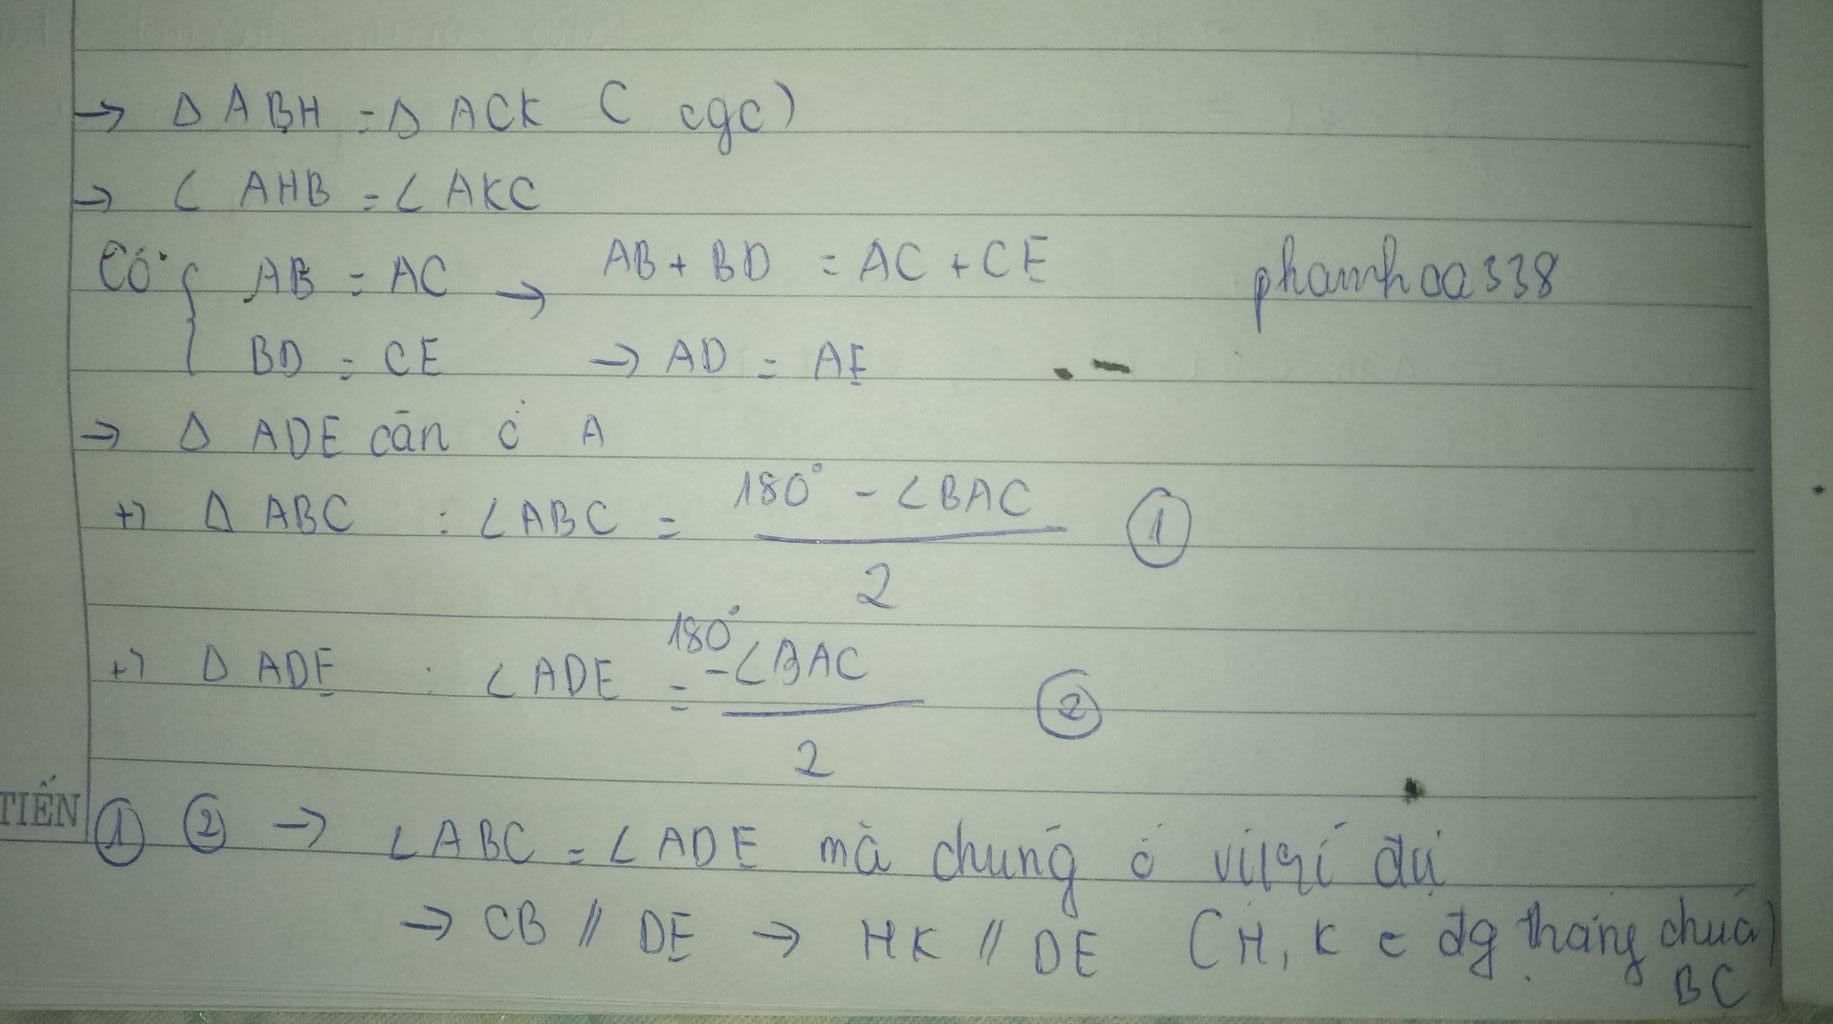 → Δ ABH = Δ ACK ( cgc)
→ ∠ AHB = ∠ AKC
Có { AB = AC → AB + BD = AC + CE
BD = CE → AD = AE
phamhoa338
→ Δ ADE cân ở A
+) Δ ABC : ∠ABC = (180° - ∠BAC) / 2 ①
+) Δ ADE : ∠ADE = (180° - ∠BAC) / 2 ②
TIẾN
① ② → ∠ABC = ∠ADE mà chúng ở vị trí đvị
→ CB // DE → HK // DE (H, K ∈ đg thẳng chứa BC)